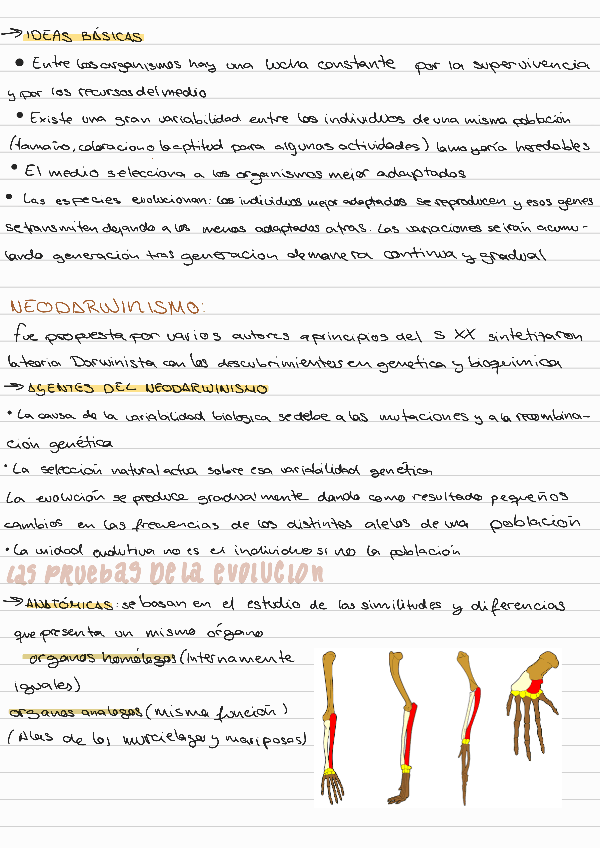 → IDEAS BÁSICAS
• Entre los organismos hay una lucha constante por la supervivencia
y por los recursos del medio
• Existe una gran variabilidad entre los individuos de una misma población
(tamaño, coloración o la aptitud para algunas actividades) la mayoría heredables
• El medio selecciona a los organismos mejor adaptados
• Las especies evolucionan: los individuos mejor adaptados se reproducen y esos genes
se transmiten dejando a los menos adaptados atras. Las variaciones se irán acumu-
lando generación tras generacion de manera continua y gradual
NEODARWINISMO:
fue propuesta por varios autores a principios del S XX sintetizaron
la teoria Darwinista con los descubrimientos en genética y bioquímica
→ AGENTES DEL NEODARWINISMO
• La causa de la variabilidad biologica se debe a las mutaciones y a la recombina-
ción genética
• La selección natural actua sobre esa variabilidad genética
La evolución se produce gradualmente dando como resultado pequeños
cambios en las frecuencias de los distintos alelos de una población
• La unidad evolutiva no es el individuo si no la población
Las PRUEBAS DE LA EVOLUCIÓN
→ ANATÓMICAS: se basan en el estudio de las similitudes y diferencias
que presenta un mismo órgano
organos homólogos (Internamente
iguales)
organos analogos (misma función)
(Alas de los murcielagos y mariposas)